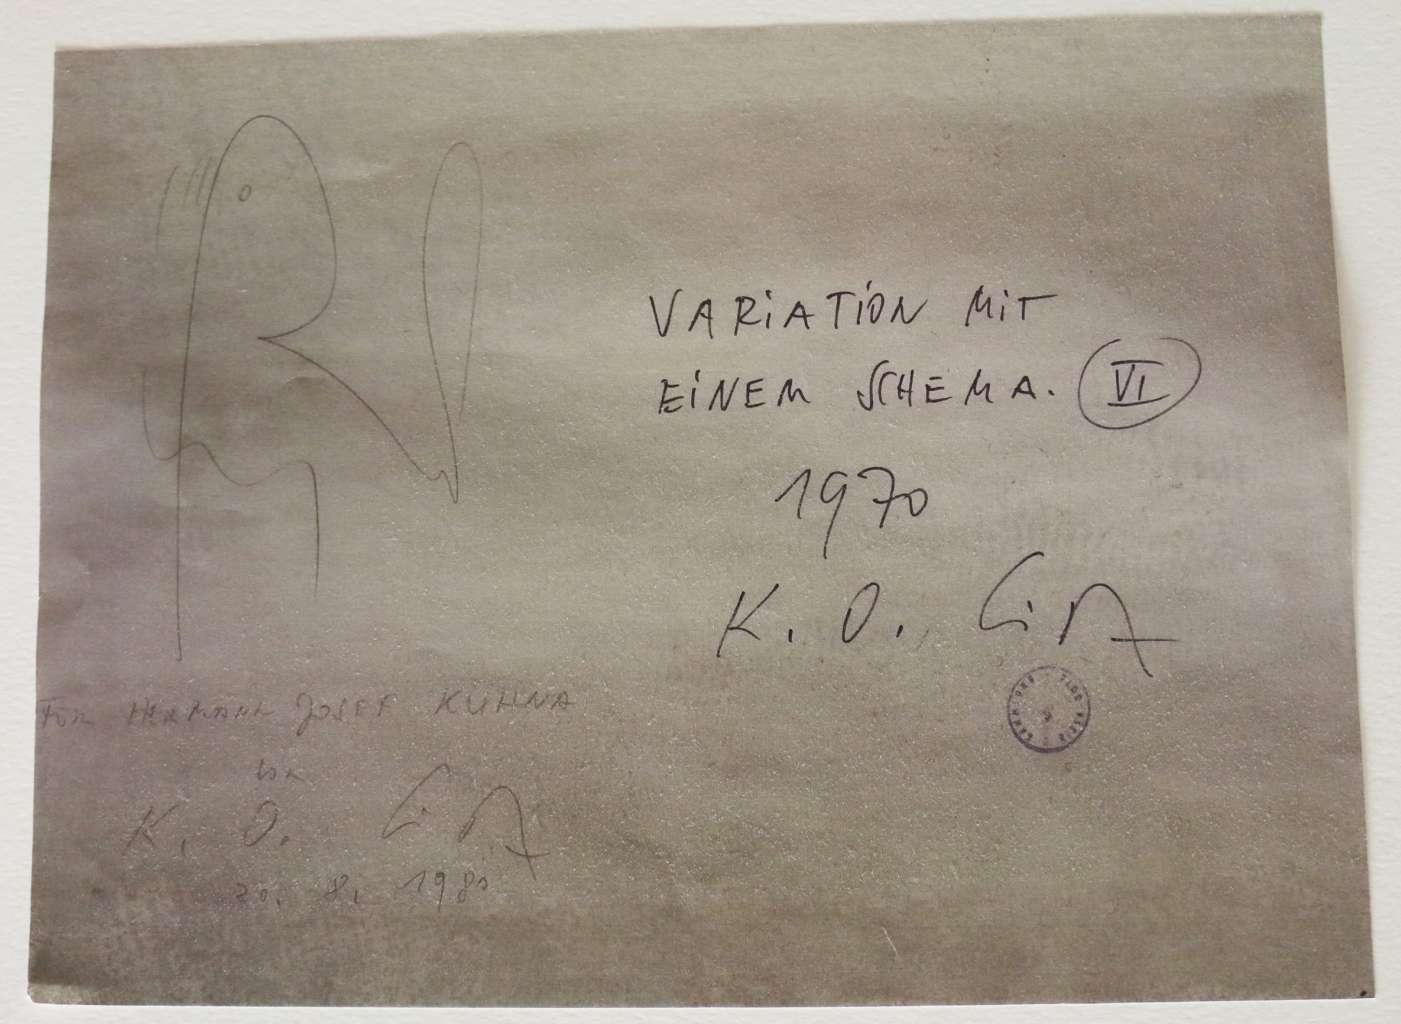 VARIATION MIT
EINEM SCHEMA. VI
1970
K. O. Götz
FÜR HERMANN JOSEF KUHNA
von
K. O. Götz
20. 8. 1980